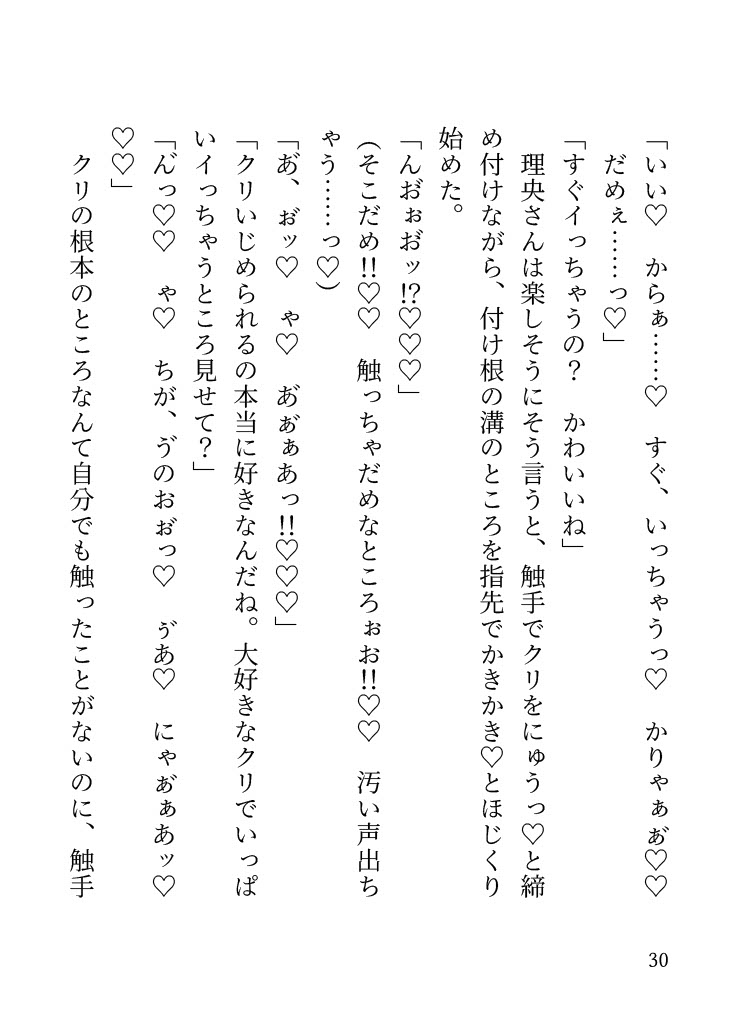 「いい♡　からぁ……♡　すぐ、いっちゃうっ♡　かりゃぁあ゙♡♡
だめぇ……っ♡」
「すぐイっちゃうの？　かわいいね」
　理央さんは楽しそうにそう言うと、触手でクリをにゅうっ♡と締
め付けながら、付け根の溝のところを指先でかきかき♡とほじくり
始めた。
「んお゙ぉお゙ッ!?♡♡♡」
（そこだめ!!♡♡　触っちゃだめなところぉお!!♡♡　汚い声出ち
ゃう……っ♡）
「あ゙、ぉ゙ッ♡　ゃ♡　あ゙ぁ゙ぁあっ!!♡♡♡」
「クリいじめられるの本当に好きなんだね。大好きなクリでいっぱ
いイっちゃうところ見せて？」
「ん゙っ♡♡　ゃ♡　ちが、ゔのおぉ゙っ♡　ぅ゙あ♡　にゃあ゙ぁあッ♡
♡♡」
　クリの根本のところなんて自分でも触ったことがないのに、触手
30